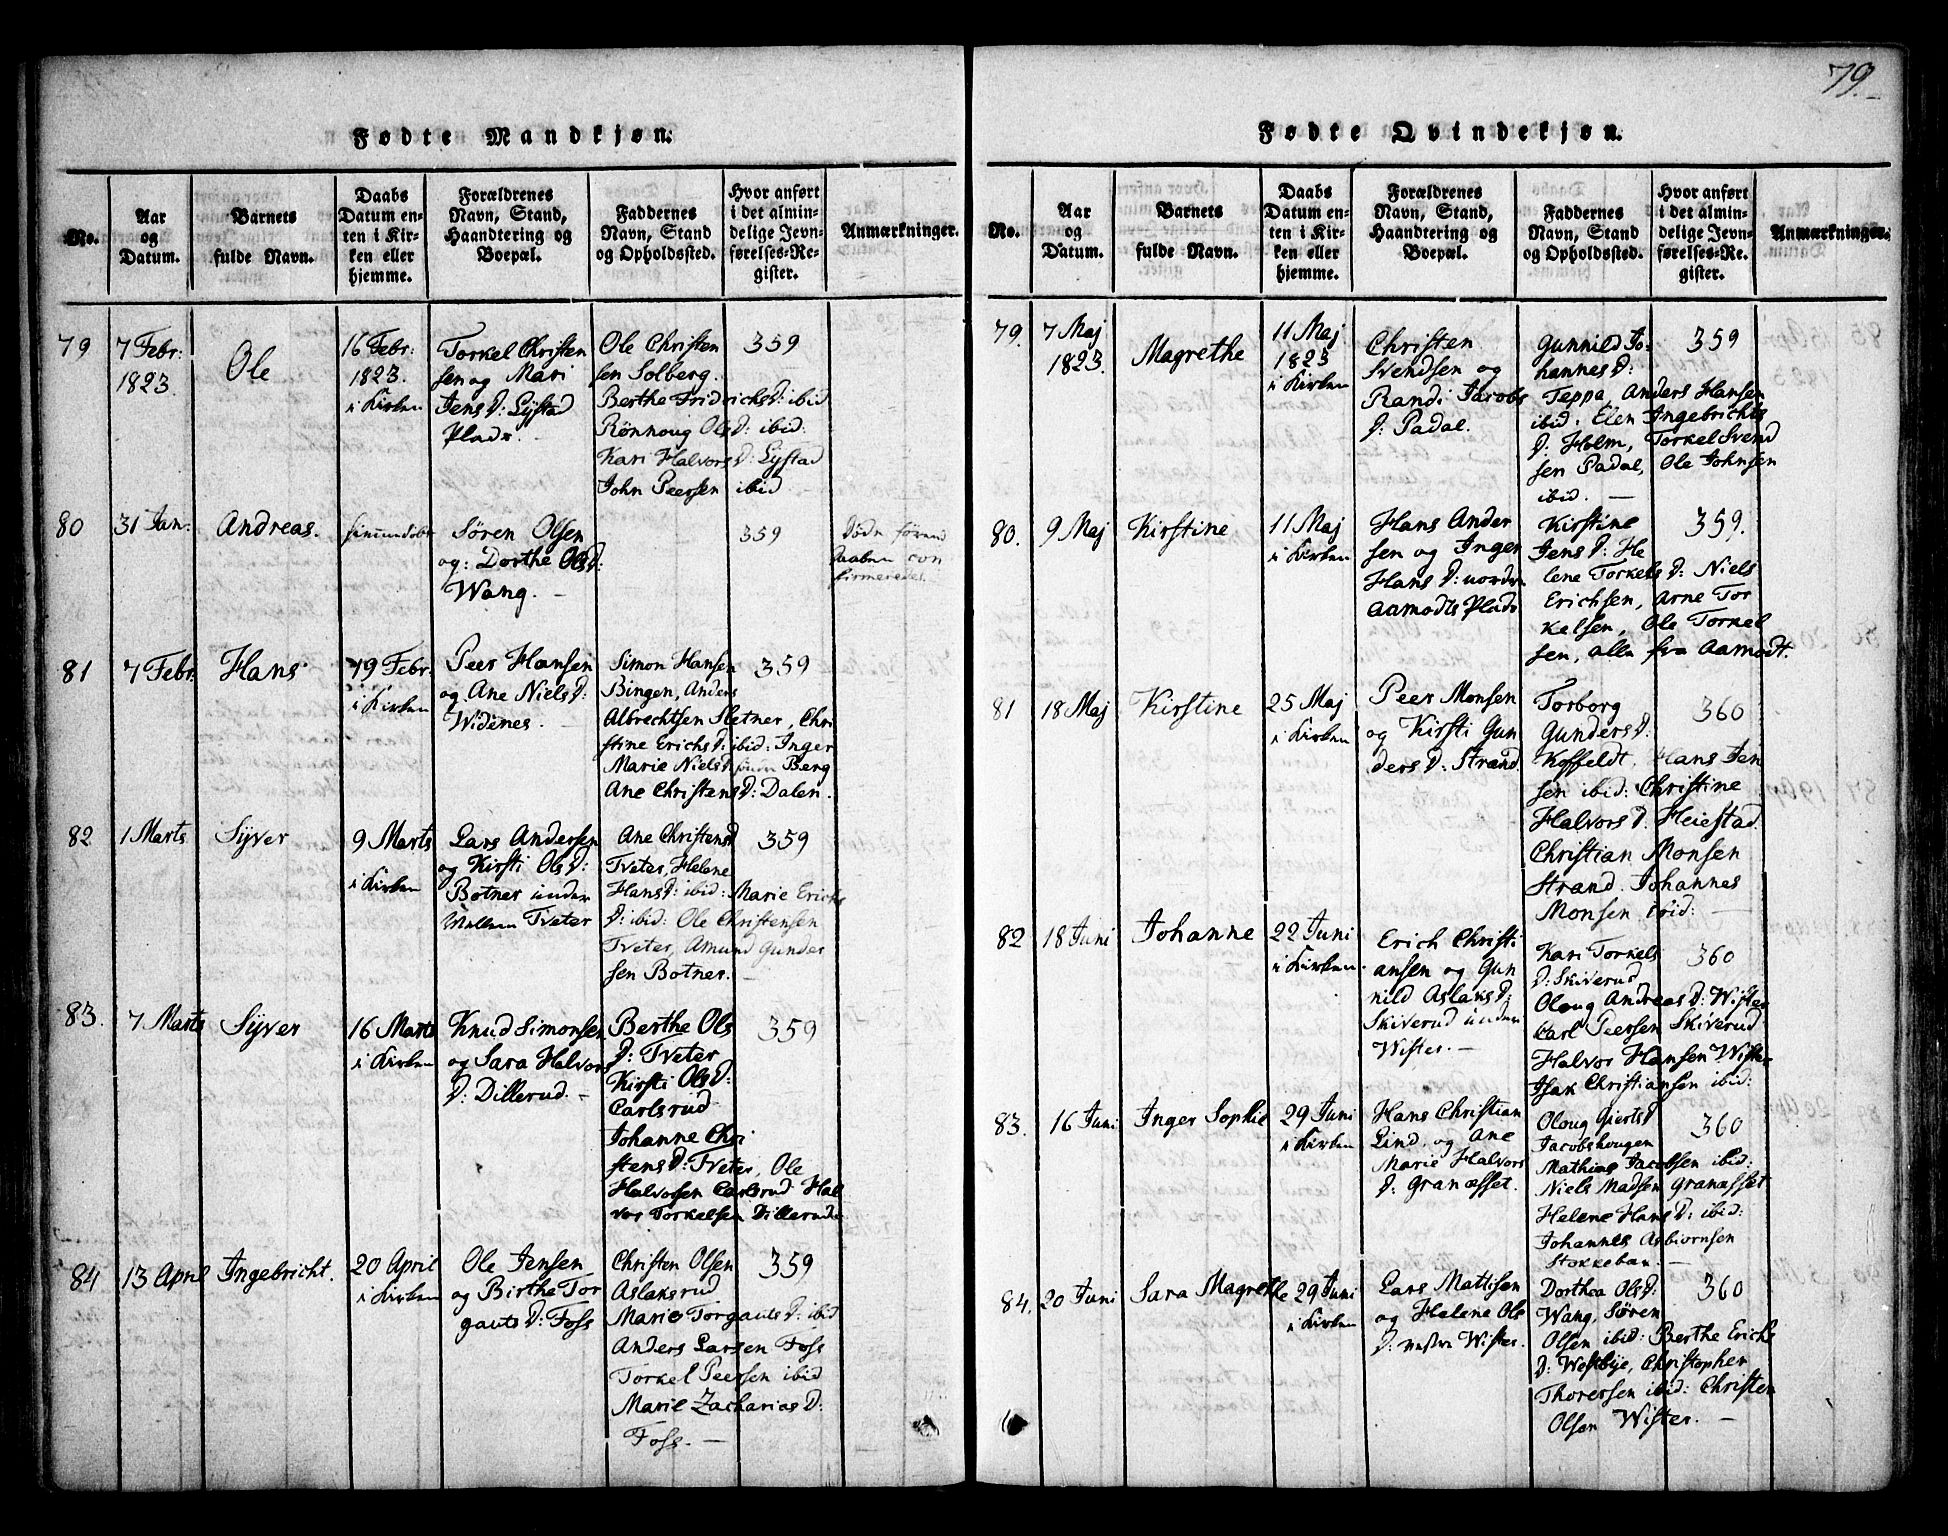 79.
Fødte Mandkjøn.
No.
Aar
og
Datum.
Barnets
fulde Navn.
Daabs
Datum en-
ten i Kir-
ken eller
hjemme.
Forældrenes
Navn, Stand,
Haandtering og
Boepæl.
Faddernes
Navn, Stand
og Opholdssted.
Hvor anført
i det almin-
delige Jevn-
førelses-Re-
gister.
Anmærkninger.
79
7 Febr:
1823.
Ole
16 Febr:
1823.
i Kirken
Torkel Christen
sen og Mari
Jens D: Lÿstad
Plads.
Ole Christen
sen Solberg.
Berthe Fridrichs D: ibid
Rönnoug Ols D: ibid:
Kari Halvors D: Lÿstad
John Peersen ibid
359
80
31 Jan:
Andreas.
Sören Olsen
og: Dorthe Ols D:
Wang. –
359
Döde förend
Daaben con
firmeredes.
81
7 Febr.
Hans
19 Febr.
i Kirken
Peer Hansen
og Ane Niels D:
Widenes. –
Simon Hansen
Bingen, Anders
Albrechtsen Sletner, Chri
stine Erichs D: ibid: Inger
Marie Niels D: Berg
Ane Christens D: Dalen.
359
82
1 Marts
Sÿver
9 Marts
i Kirken
Lars Andersen
og Kirsti Ols D:
Botner under
Tveter
Ane Christens D
Tveter, Helene
Hans D: ibid: Marie Erichs
D: ibid: Ole Christensen
Tveter, Amund Gunder
sen Botner. –
359
83.
7 Marts
Sÿver
16 Marts
i Kirken
Knud Simonsen
og Sara Halvors
D: Dillerud. –
Berthe Ols
D: Tveter
Kirsti Ols D:
Carlsrud
Johanne Chri
stens D: Tveter, Ole
Halvorsen Carlsrud Hal
vor Torkelsen Dillerud.
359
84
13 April
Ingebricht.
20 April
i Kirken
Ole Jensen
og Birthe Tor
gauts D: Foss
Christen Olsen
Aslaksrud
Marie Torgauts D: ibid
Anders Larsen Foss
Torkel Peersen ibid
Marie Zacharias D:
Foss. –
359
Fødte Qvindekjøn.
No.
Aar
og
Datum.
Barnets
fulde Navn.
Daabs
Datum en-
ten i Kir-
ken eller
hjemme.
Forældrenes
Navn, Stand,
Haandtering og
Boepæl.
Faddernes
Navn, Stand
og Opholdssted.
Hvor anført
i det almin-
delige Jevn-
førelses-Re-
gister.
Anmærkninger.
79.
7 Maj
1823.
Magrethe
11 Maj
1823
i Kirken
Christen
Svendsen og
Randi Jacobs
D: Padal.
Gunnild Jo-
hannes D:
Teppa, Anders Hansen
ibid. Elen Ingebrichts
D: Holm, Torkel Svend
sen Padal, Ole Johnsen
ibid. –
359
80.
9 Maj
Kirstine
11 Maj
i Kirken
Hans Ander
sen og Inger
Hans D: norden
Aamodts Plads
Kirstine
Jens D: He
lene Torkels D: Niels
Erichsen, Arne Tor
kelsen, Ole Torkel
sen, alle fra Aamodt.
359.
81
18 Maj
Kirstine
25 Maj
i Kirken
Peer Monsen
og Kirsti Gun
ders D: Strand.
Torborg
Gunders D:
Koffeldt. Hans Jen
sen ibid: Christine
Halvors D. Heiestad.
Christian Monsen
Strand. Johannes
Monsen ibid: –
360
82
18 Juni
Johanne
22 Juni
i Kirken
Erich Christi
ansen og Gun
nild Aslaks D:
Skiverud under
Wister. –
Kari Torkels
D: Skiverud
Oloug Andreas D: Wister
Carl Peersen Skiverud
Halvor Hansen Wister
Isak Christiansen ibid:
360
83.
16 Juni
Inger Sophie
29 Juni
i Kirken
Hans Christian
Lind, og Ane
Marie Halvors
D: Granæsset.
Oloug Gierts D
Jacobshougen
Mathias Jacobsen ibid:
Niels Madsen Granæsset
Helene Hans D: ibid:
Johannes Asbiornsen
Stokkeban. –
360
84.
20 Juni
Sara Magrethe
29 Juni
i Kirken
Lars Mattisen
og Helene Ols
D: vestre Wister.
Dorthea Ols D:
Wang, Søren
Olsen ibid: Berthe Erichs
D: Westbÿe, Christopher
Thoresen ibid: Christen
Olsen Wister. –
360